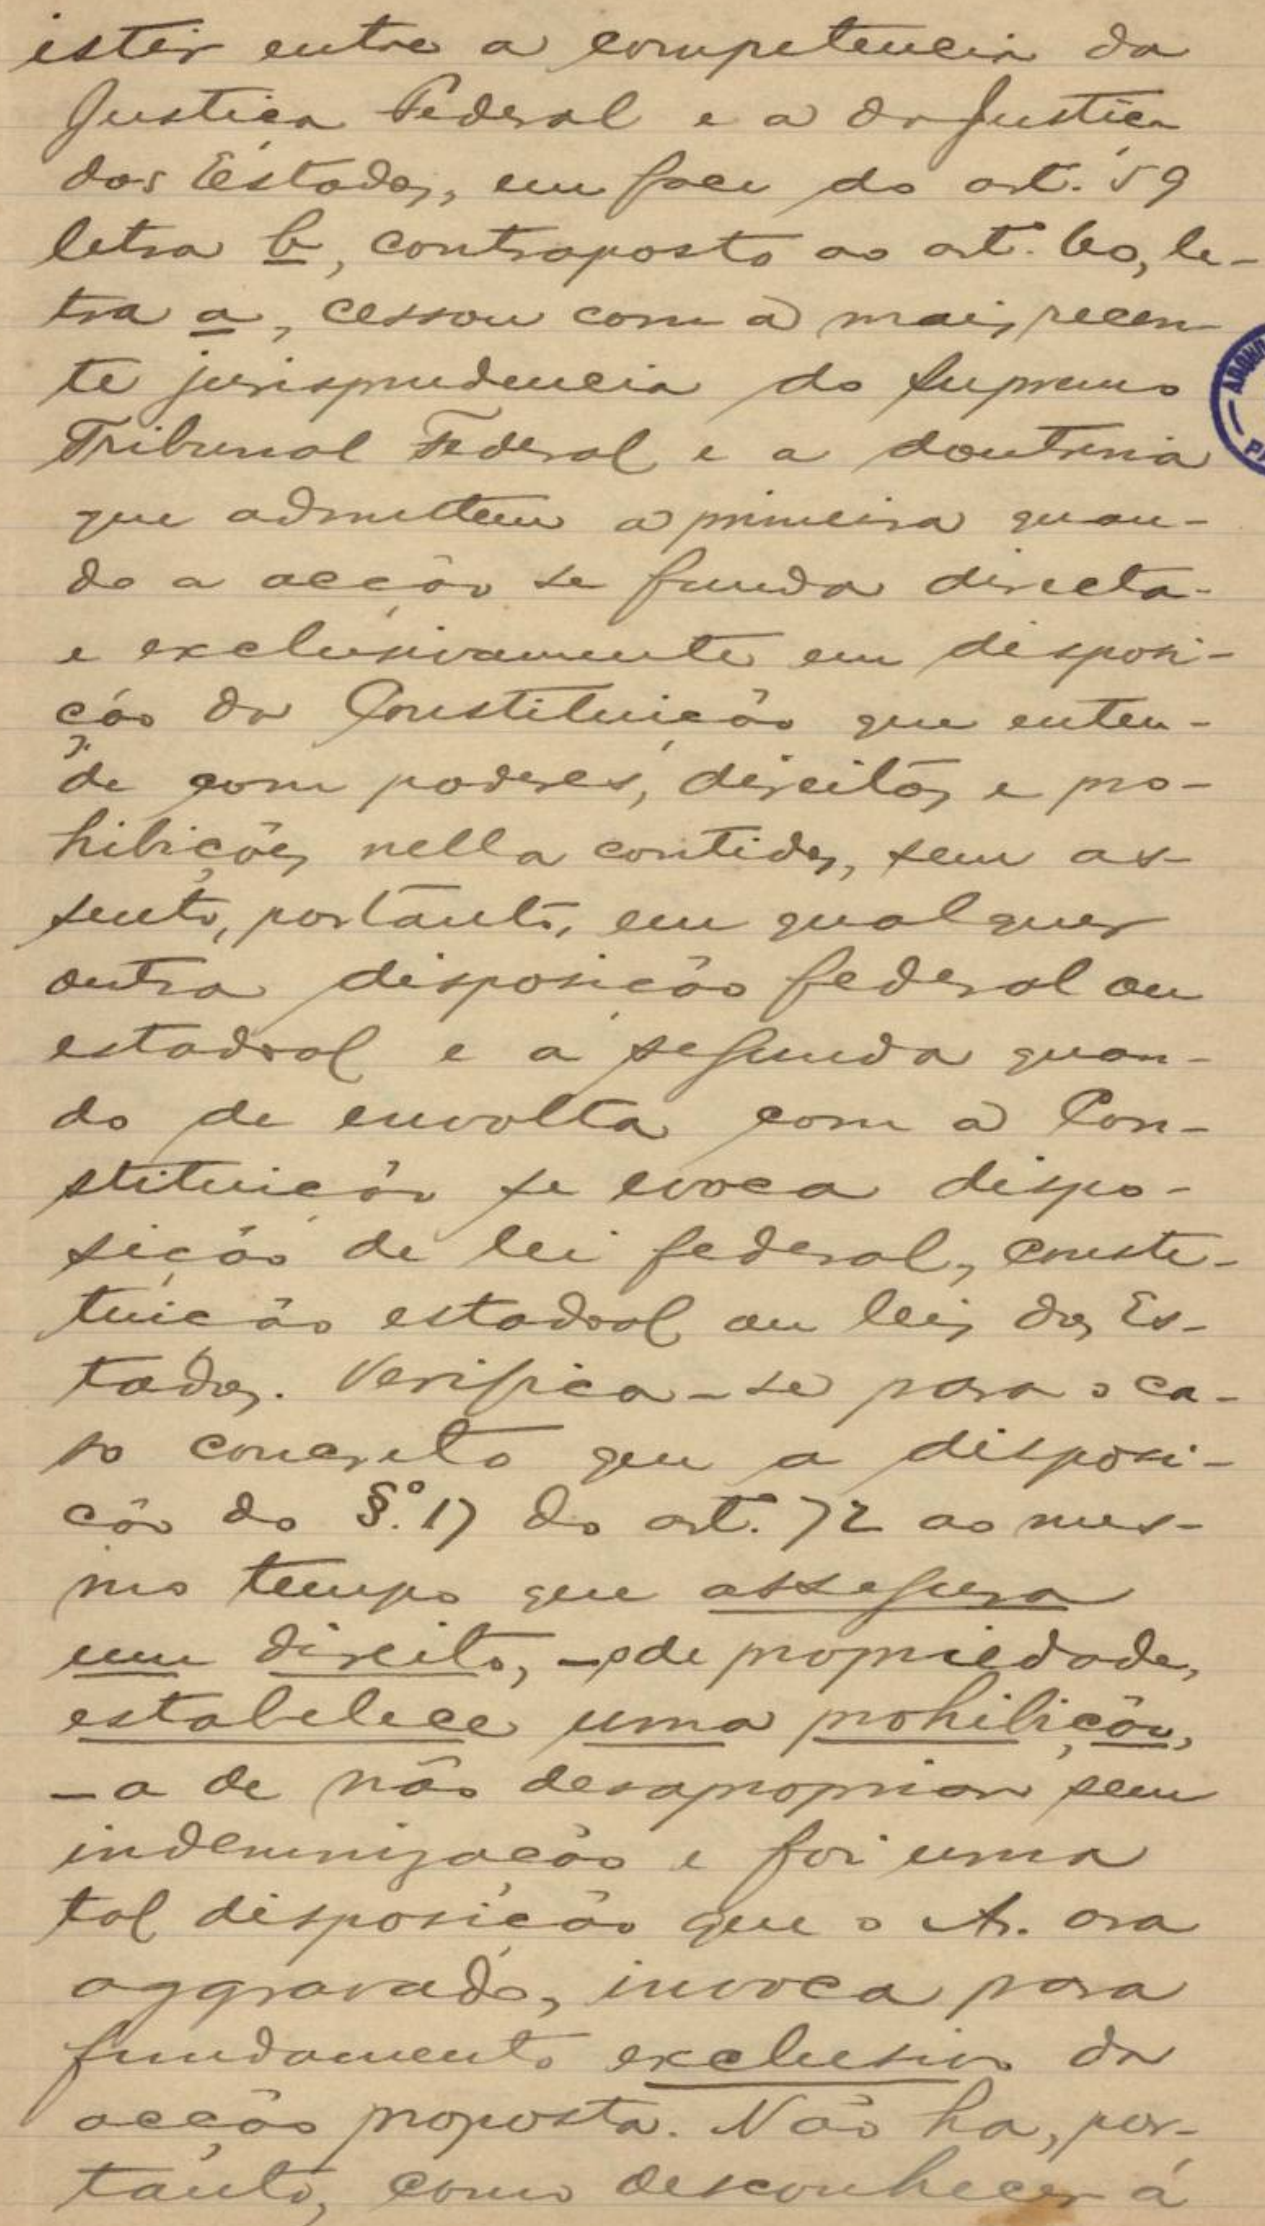 istir entre a competencia da
Justiça Federal e a da Justiça
dos Estados, em face do art. 59
letra b, contraposto ao art. 60, le-
tra a, cessou com a mais recen-
te jurisprudencia do Supremo
Tribunal Federal e a doutrina
que admittem a primeira quan-
do a acção se funda directa
e exclusivamente em disposi-
ção da Constituição que enten-
de com poderes, direitos e pro-
hibições nella contidos, sem as-
sento, portanto, em qualquer
outra disposição federal ou
estadoal e a segunda quan-
do de envolta com a Con-
stituição se evoca dispo-
sição de lei federal, consti-
tuição estadoal ou leis dos Es-
tados. Verifica-se para o ca-
so concreto que a disposi-
ção do §.º 17 do art. 72 ao mes-
mo tempo que assegura
um direito, - o de propriedade,
estabelece uma prohibição,
- a de não desapropriar sem
indemnização e foi uma
tal disposição que o A. ora
aggravado, invoca para
fundamento exclusivo da
acção proposta. Não ha, por-
tanto, como desconhecer á